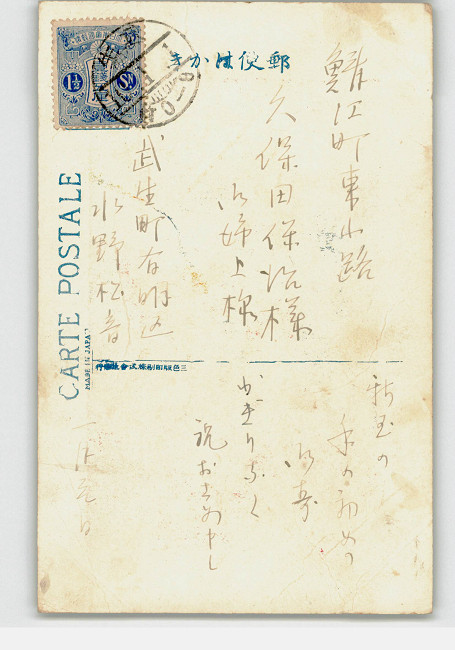 郵便はかき
鯖江町東小路
久保田保治様
御姉上様
武生町有明区
水野松音
新玉の
年の初めの
御寿
かぎりなく
祝お去め申し
一月元日
CARTE POSTALE
MADE IN JAPAN
三色版印刷株式会社
1½ SN